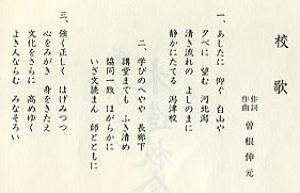 校歌
作詞
作曲
曽根伸元
一、あしたに 仰ぐ 白山や
夕べに 望む 河北潟
清き流れの よしのまに
静かにたてる 潟津校
二、学びのへやや 長廊下
講堂までも ふき清め
協同一致 ほがらかに
いざ文読まん 師とともに
三、強く正しく はげみつつ
心をみがき 身をきたえ
文化をさらに 高めゆく
よききんならむ みなそろい